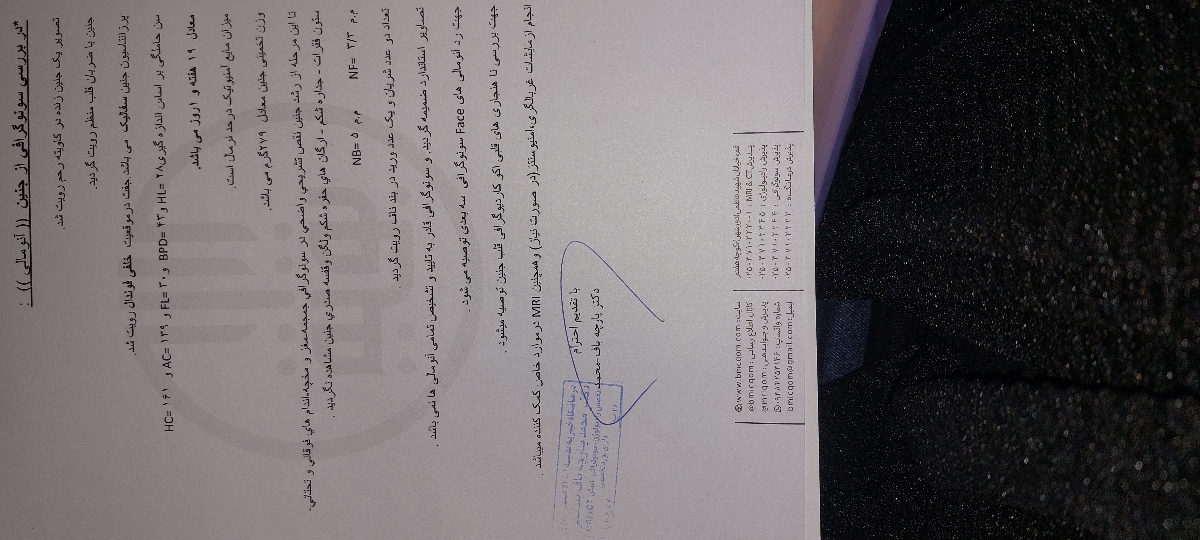 *در بررسی سونوگرافی از جنین (( آنومالی )) :
تصویر یک جنین زنده در کاویته رحم رویت شد.
جنین با ضربان قلب منظم رویت گردید.
پرزانتاسیون جنین سفالیک می باشد. جفت در موقعیت خلفی فوندال رویت شد.
سن حاملگی بر اساس اندازه گیری HL= ۲۸ و BPD= ۴۳ و FL= ۳۰ و AC= ۱۳۹ و HC= ۱۶۱
معادل ۱۹ هفته و ۱ روز می باشد.
میزان مایع آمنیوتیک در حد نرمال است.
وزن تخمینی جنین معادل ۲۷۹ گرم می باشد.
تا این مرحله از رشد جنین نقص تشریحی واضحی در سونوگرافی جمجمه،مغز و مخچه،اندام های فوقانی و تحتانی-
ستون فقرات - جداره شکم - ارگان های حفره شکم ولگن وقفسه صدری جنین مشاهده نگردید.
NB= ۵ م.م NF= ۳/۳ م.م
تعداد دو عدد شریان و یک عدد ورید در بند ناف رویت گردید
تصاویر استاندارد ضمیمه گردید. و سونوگرافی قادر به تایید و تشخیص تمامی آنومالی ها نمی باشد .
جهت رد آنومالی های Face سونوگرافی سه بعدی توصیه می شود .
جهت بررسی نا هنجاری های قلبی اکو کاردیوگرافی قلب جنین توصیه میشود .
انجام آزمایشات غربالگری،آمنیوسنتز(در صورت نیاز) و همچنین MRI در موارد خاص کمک کننده میباشد .
با تقدیم احترام
دکتر پارچه باف محمد
MRI & CT
سایت: www.bmcqom.com
کانال اطلاع رسانی: @bmcqom
پذیرش و جوابدهی: @mrcqom
شماره واتساپ:
ایمیل: bmcicqom@gmail.com